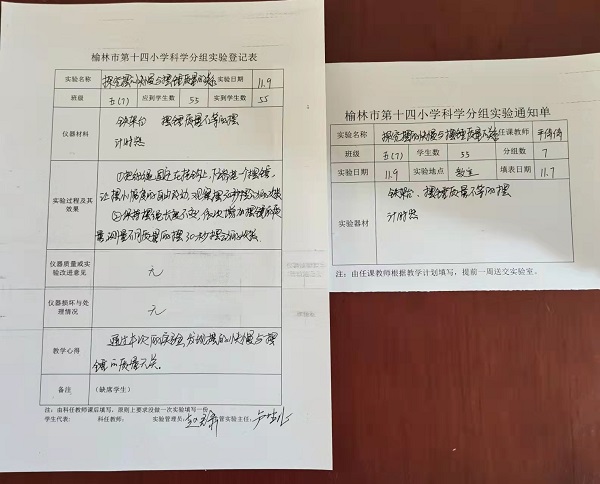 榆林市第十四小学科学分组实验登记表
实验名称 探究摆的快慢与摆锤质量的关系 实验日期 11.9
班级 五(7) 应到学生数 55 实到学生数 55
仪器材料 铁架台 摆锤质量不等的摆
计时器
实验过程及其效果
让摆小幅度的自由摆动,观察摆30秒摆动的次数
②保持摆绳长度不变,依次增加摆锤的质
量,测量不同质量的摆30秒摆动的次数
仪器质量或实验改进意见 无
仪器损坏与处理情况 无
教学心得 通过本次的实验,发现摆的快慢与摆
锤的质量无关。
备注 (缺席学生)
注:由科任教师课后填写,原则上要求没做一次实验填写一份。
学生代表: 科任教师: 实验管理员: 管实验主任:
榆林市第十四小学科学分组实验通知单
实验名称 探究摆的快慢与摆锤质量关系 任课教师
班级 五(7) 学生数 55 分组数 7
实验日期 11.9 实验地点 教室 填表日期 11.7
实验器材 铁架台、摆锤质量不等的摆
计时器
注:由任课教师根据教学计划填写,提前一周送交实验室。